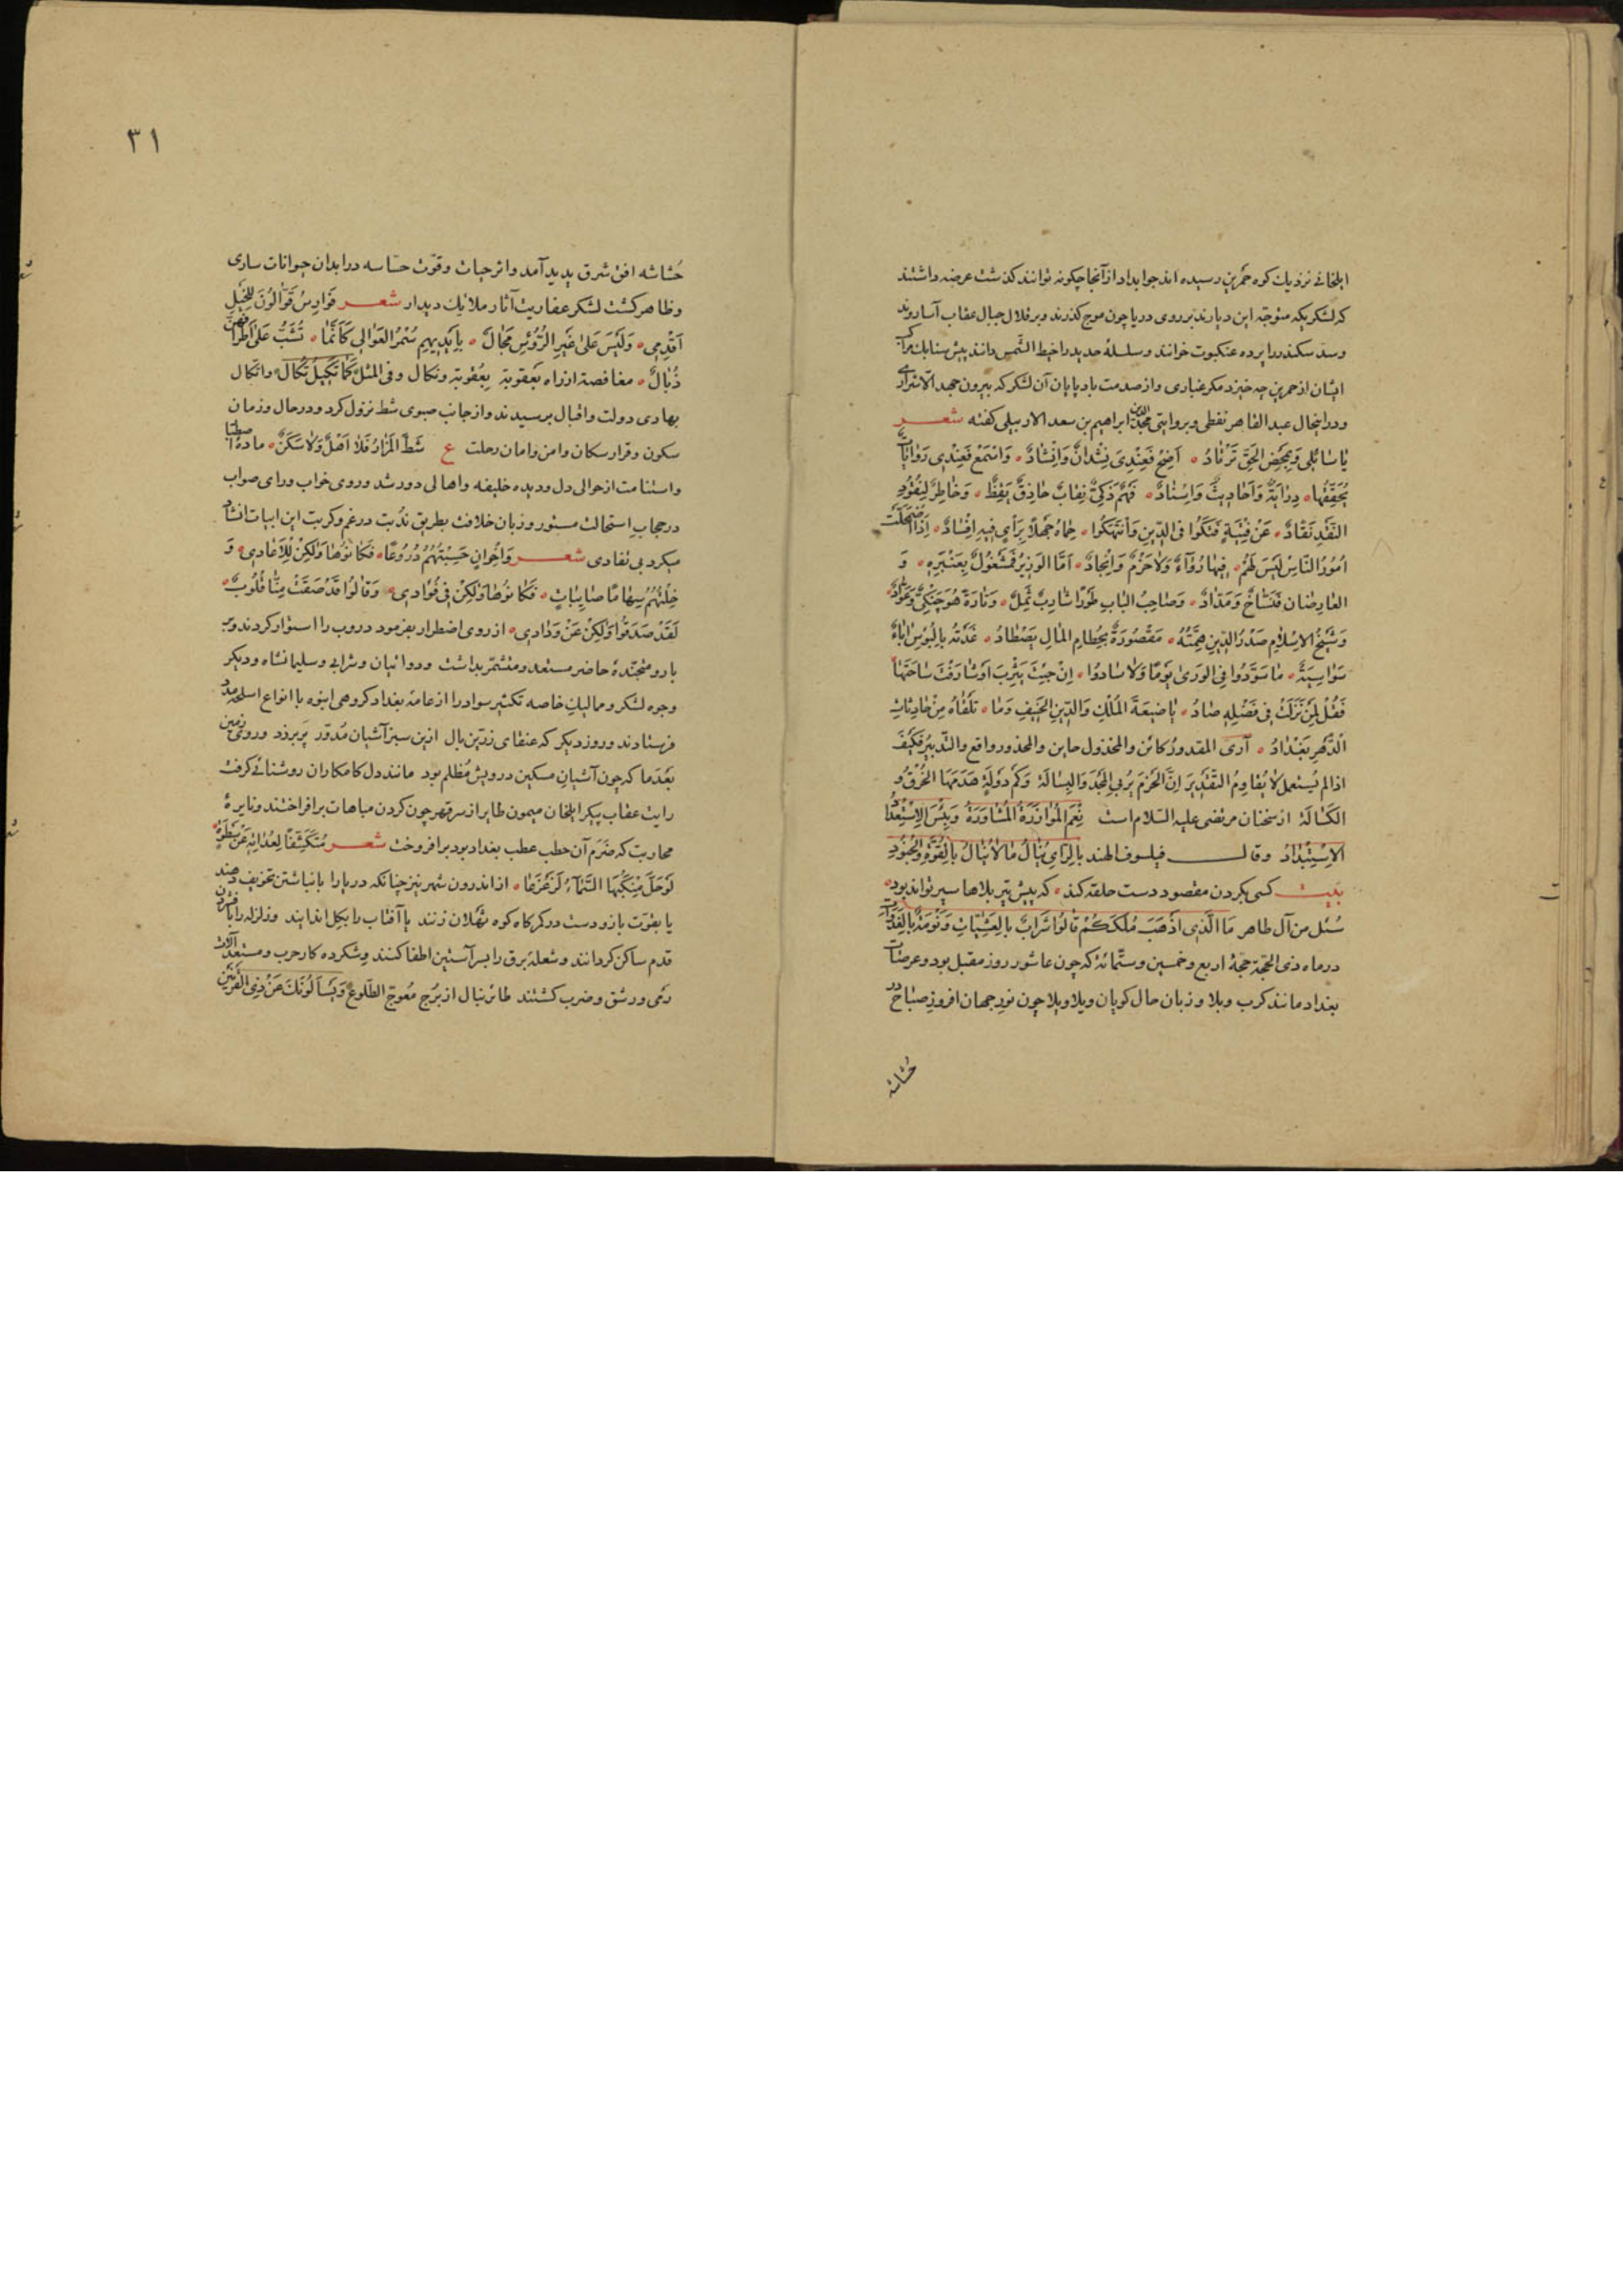 ایلخانی نزدیك کوه حمرین رسیده اند جواب داد از آنجا چکونه توانند کذشت عرضه داشتند
که لشکریکه متوجّه این دیارند بر روی دریا چون موج کذرند و بر قلال جبال عقاب آسا روند
و سدّ سکندر را پرده عنکبوت خوانند و سلسلهٔ حدید را خیط الشمس دانند پیش سنابك مراکب
ایشان از حمرین چه خیزد مکر غباری و از صدمت باد پایان آن لشکر که بیرون جهد الّا شراری
و در اینحال عبد القاهر نقطی و بروایتی مجد الدین ابراهیم بن سعد الاردبیلی کفته شعر
یا سٰائلی وَ لِمَحْضِ الحَقِ تَرْتٰادُ ٠ اَصِخْ فَعِنْدِی نِشْدانٌ وَ اِنْشٰادٌ ٠ وَ اسْتَمعْ فَعِنْدِی رَوٰایٰاتٌ
یُحَقِّقُها ٠ دِرٰایَةٌ وَ اَحٰادِیثٌ وَ اِسْنٰادٌ ٠ فَهْمٌ ذَکِیٌّ نِقٰابٌ حٰاذِقٌ یَقِظٌ ٠ وَ خٰاطِرٌ لِنُقُودِ
النَّقْدِ نَقّادٌ ٠ عَنْ فِتْیَةٍ فَتَکُوا فی الدّینِ وَ انْتَهَکُوا ٠ حِمٰاهُ جَهْلًا بِرَأیٍ فیهِ اِفْسٰادٌ ٠ اِذَا اضْمَحَلَّتْ
اُمُورُ النّٰاسِ لَیْسَ لَهُمْ ٠ فِیهٰا رُوٰآءٌ وَ لٰا حَزْمٌ وَ اِنْجٰادٌ ٠ اَمَّا الوَزیرُ فَمَشْغُولٌ بِعَنْبَرِهِ ٠ وَ
العٰارِضٰان فَنَسّٰاجٌ وَ مَدّٰادٌ ٠ وَ صٰاحِبُ البٰابِ طَوْرًا شٰارِبٌ ثَمِلٌ ٠ وَ تٰارَةً هُوَ جَنْکِیٌّ وَ عَوّٰادٌ
وَ شَیْخُ الاِسْلٰامِ صَدْرُ الدّینِ هِمَّتُهُ ٠ مَقْصُورَةٌ بِحُطٰامِ المٰالِ یَصْطٰادُ ٠ غَذَتْهُ بِالبُؤسِ اٰبٰاءٌ
سَوٰاسِیَةٌ ٠ مٰا سَوَّدُوا فِی الوَرَیٰ یَوْمًا وَ لٰا سٰادوُا ٠ اِنْ جِئْتَ یَثْرِبَ اَوْ شٰارَفْتَ سٰاحَتَهٰا
فَقُلْ لِمَنْ نَزَلَتْ فِی فَضْلِهِ صٰادُ ٠ یٰا ضَیْعَةَ المُلْكِ وَ الدّینِ الحَنِیفِ وَ مٰا ٠ تَلْقٰاهُ مِنْ حٰادِثٰاتِ
الدَّهْرِ بَغْدٰادُ ٠ آری المقدورُ کائن والمخذول حاین والمحذور واقع والتّدبیرُ فَکَیْفَ
اذا لم یُستعمل لٰا یُقٰاوِمُ التَّقْدِیرَ اِنَّ الحَزْمَ یُرْبِی المَجْدَ وَ البِسٰالَة وَ کَمْ دَوْلَةٍ هَدَمَهَا الخُرْقُ وُ
الکَسٰالَة از سخنان مرتضی علیه السّلام است نِعْمَ المُوٰازَرَةُ المُشٰاوَرَةُ وَ بِئْسَ الاِسْتِعْدٰادُ
الاِسْتِبْدٰادُ وقال فیلسوف الهند بِالرّایِ یُنٰالُ مٰا لاٰ یُنٰالُ بالقُوَّةِ و الجُنُودِ
بیت کسی بکردن مقصود دست حلقه کند ٠ که پیش تیر بلاها سپر تواند بود ٠
سُئل من آل طاهر مٰا الَّذِی اَذْهَبَ مُلْکَکُمْ قٰالوُا شَرَابٌ بِالعَشِیّٰاتِ وَ نَوْمَةٌ بِالغَدَوٰاتِ
در ماه ذی الحجّه حجهٔ اربع و خمسین و ستّمائة که چون عاشور روز مقبل بود و عرصٰات
بغداد مانند کرب و بلا و زبان حال کویان ویلا ویلا چون نورِ جهان افروزِ صبٰاح در
حُشاشه
٣١
حُشاشه افق شرق پدید آمد و اثر حیات و قوّت حسّاسه در ابدان حیوانات ساری
و ظاهر کشت لشکر عفاریت آثار ملایك دیدار شعر فَوَارِسُ قَوّٰالُونَ لِلخَیْلِ
اَقْدِمِی ٠ وَ لَیْسَ عَلیٰ غَیْرِ الرُّؤسِ مَجٰالٌ ٠ بِاَیْدِیهِمِ سُمْرُ العَوٰالِی کَاَنَّمٰا ٠ تُشَبُّ عَلیٰ اَطْرٰافِهِنَّ
ذُبٰالٌ ٠ مغافصة از راه بَعقوبة بِعُقوبة و نکال و فی المثل کَمٰا تَکِیلُ تُکٰالُ و اتّکال
بهادی دولت و اقبال برسیدند و از جانب صوی شط نزول کرد و در حال و زمان
سکون و قرار سکان و امن و امان رحلت ع شَطَّ المَزارُ فَلٰا اَهْلٌ وَ لٰا سَکَنٌ ٠ مادهٔ اصطبار
و استنامت از حوالی دل و دیده خلیفه و اهالی دور شد و روی خواب و رای صواب
در حجاب استحالت مستور و زبان خلافت بطریق نُدبت در غم و کربت این ابیات انشاد
میکرد بی تفادی شعر وَ اِخْوٰانٍ حَسِبْتُهُمُ دُرُوعًا ٠ فَکٰانُوهٰا وَلٰکِنْ لِلاَعٰادِی ٠ وَ
خِلْتُهُمُ سِهٰامًا صٰایِبٰاتٍ ٠ فَکٰانُوهٰا وَلٰکِنْ فِی فُؤٰادِی ٠ وَ قٰالُوا قَدْ صَفَتْ مِنّٰا قُلُوبٌ ٠
لَقَدْ صَدَقُوا وَلٰکِنْ عَنْ وَدٰادِی ٠ از روی اضطرار بفرمود دروب را استوار کردند و بر
بارو متجنّدهٔ حاضر مستعد و متشمّر بداشت و دواتیان و شرابی و سلیمانشاه و دیکر
وجوه لشکر و ممالیكِ خاصه تکثیر سواد را از عامهٔ بغداد کروهی انبوه با انواع اسلحه مدد
فرستادند و روز دیکر که عنقای زرّین بال ازین سبز آشیان مُدوّر پَر بر زد و روی زمین
بَعْدَما که چون آشیانِ مسکین درویش مُظلم بود مانند دل کامکاران روشنائی کرفت
رایت عقاب پیکر ایلخان میمون طایر از سر قهر چون کردن مباهات بر افراختند و نایرهٔ
محاربت که ضَرَم آن حطب عطب بغداد بود بر افروخت شعر مُتَکَشِّفًا لِعُدٰاتِهِ عَنْ سَطْوَةٍ ٠
لَوْ حَلَّ مَنْکِبُهَا السَّمٰآءَ لَزَعْزَعٰا ٠ از اندرون شهر نیز چنانکه دریا را بانباشتن تخویف دهند
یا بقوّت بازو دست در کمرکاه کوه ثهلان زنند یا آفتاب را بکِل اندایند و زلزله را بافشردن
قدم ساکن کردانند و شعلهٔ برق را بسر آستین اطفا کنند و شکرده کار حرب و مستعدِّ آلات
رمی و رشق و ضرب کشتند طائر نبال از برُج معوج الطّلوع وَ یَسْأَلُونَكَ عَنْ ذِی القَرْنَیْنِ